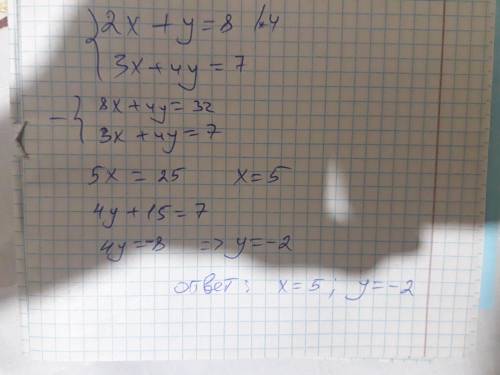 2x + y = 8 | ·4
3x + 4y = 7
8x + 4y = 32
- 3x + 4y = 7
5x = 25 x = 5
4y + 15 = 7
4y = -8 => y = -2
ответ: x = 5; y = -2